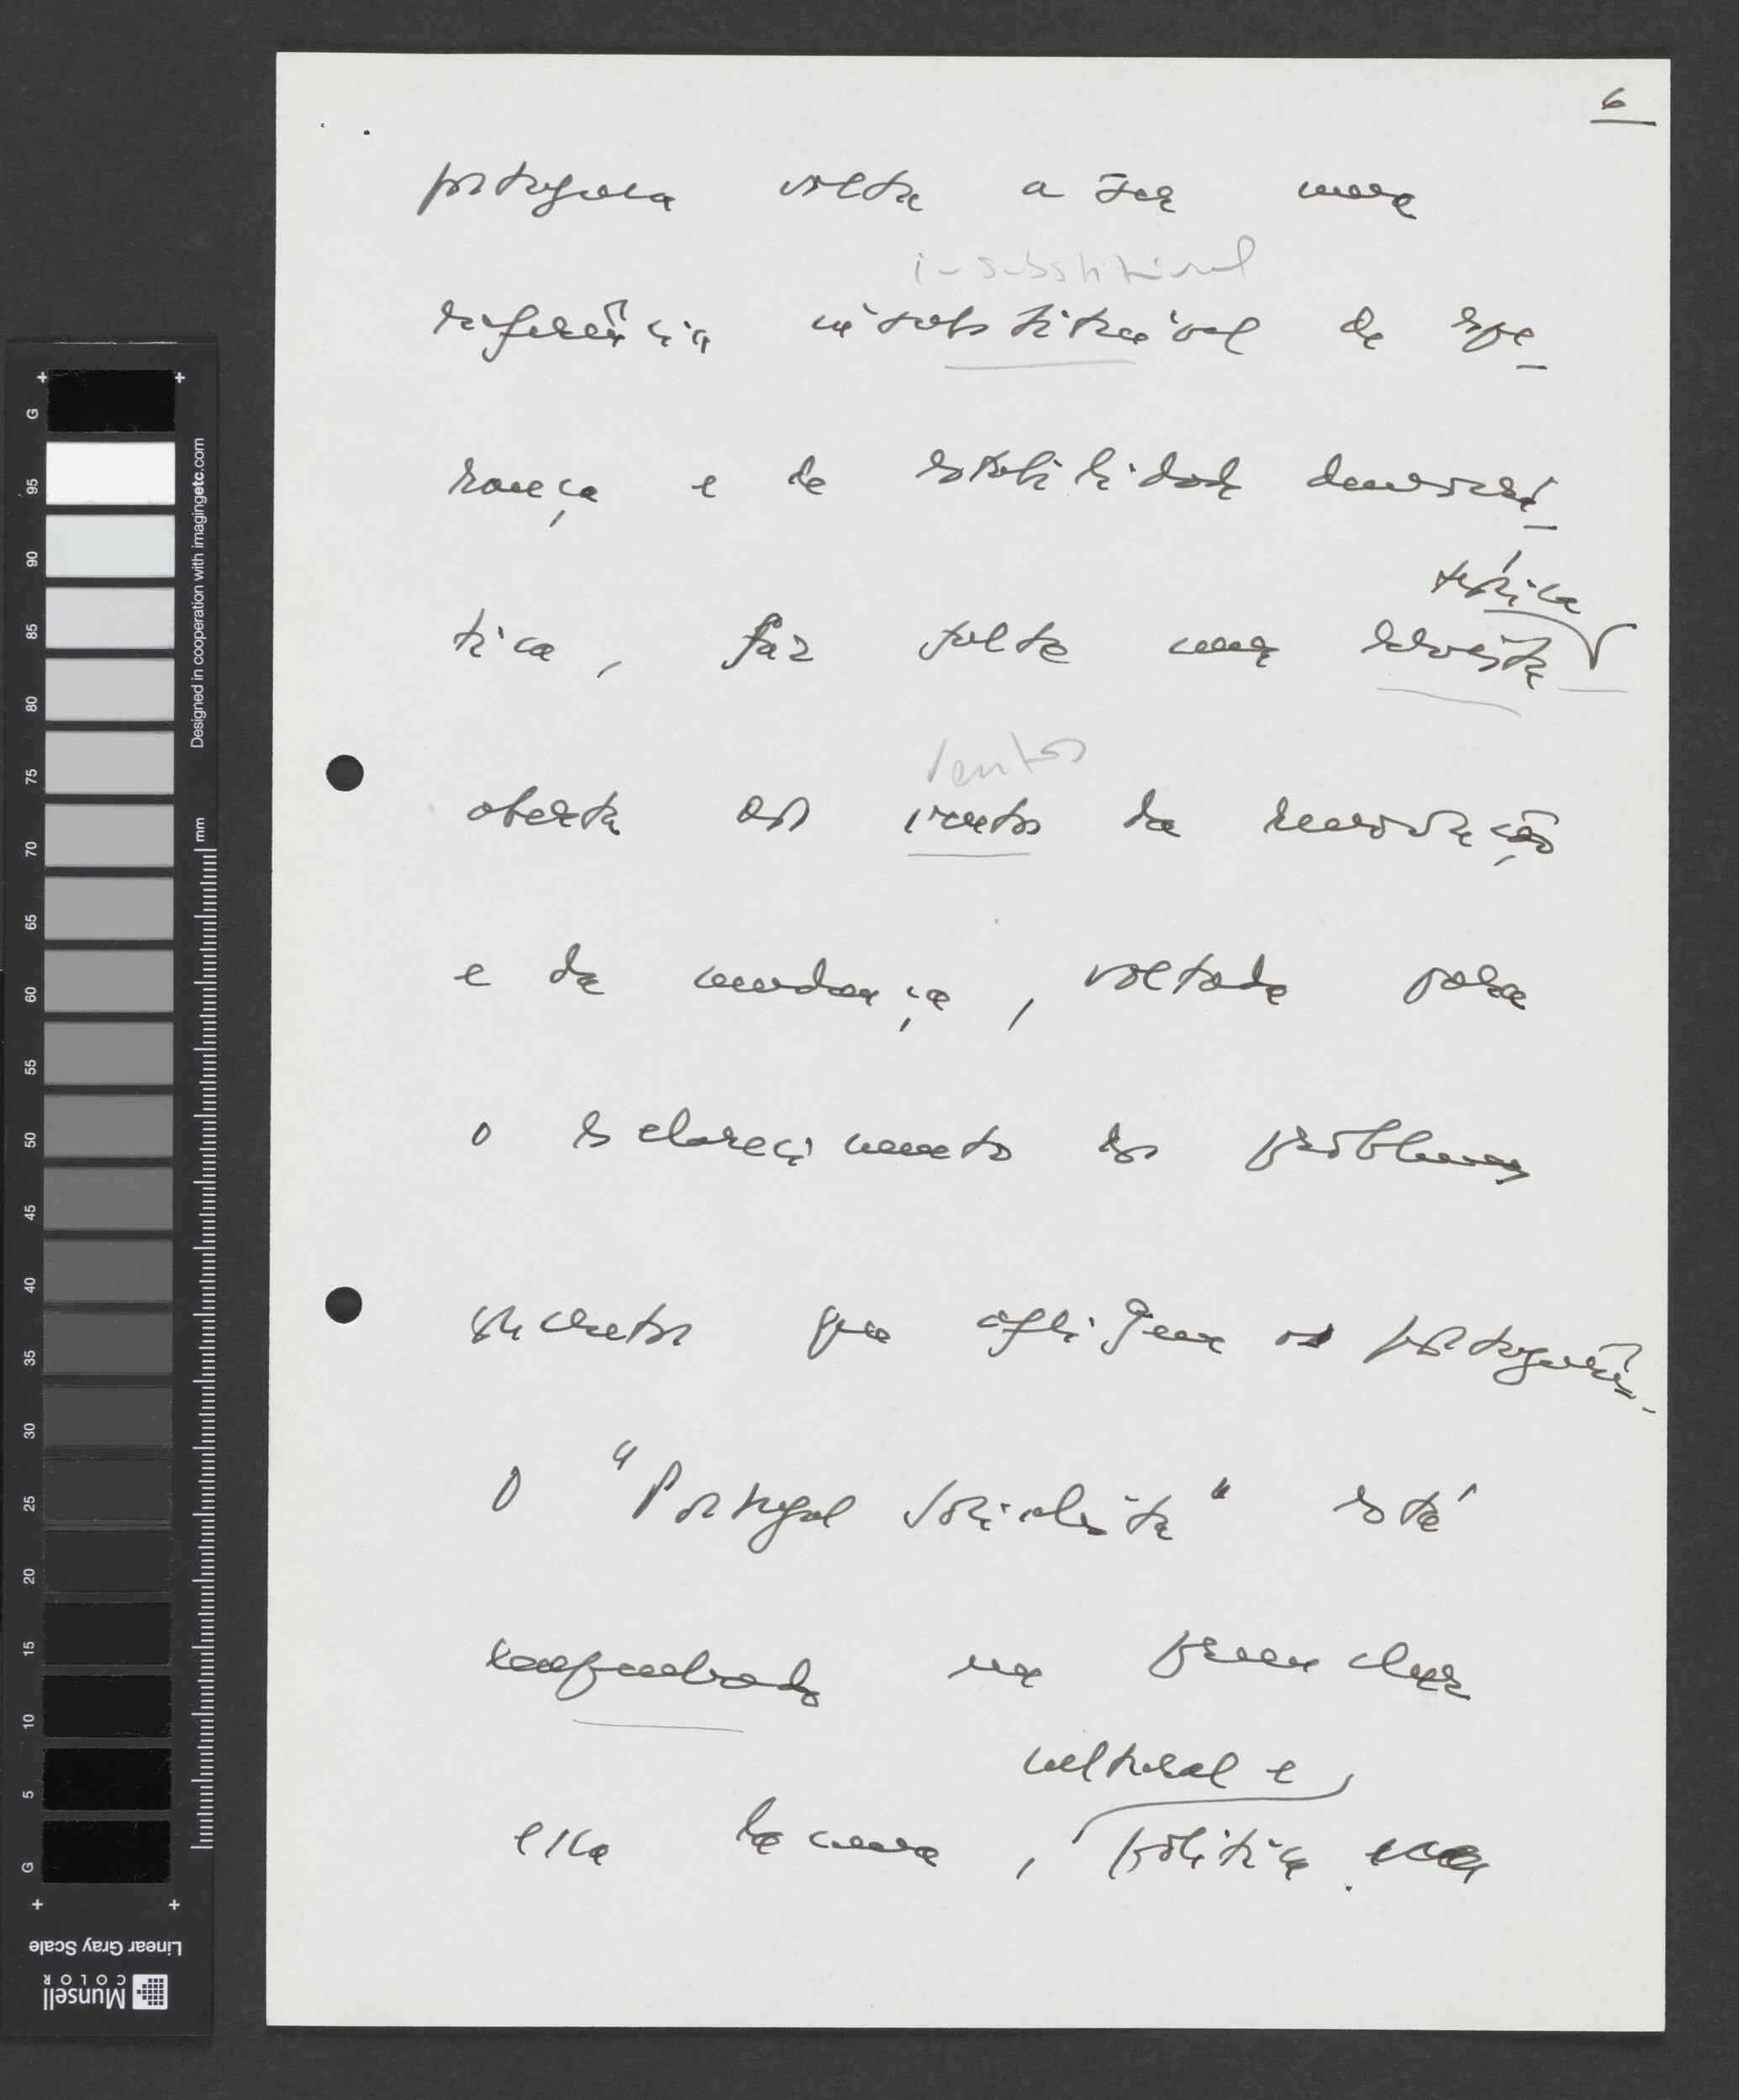 6
portuguesa volta a ser uma
insubstituível
referência insubstituível de espe-
rança e de estabilidade democrá-
teórica
tica, faz falta uma revista
ventos
aberta aos ventos da renovação
e da mudança, voltada para
o esclarecimento dos problemas
concretos que afligem os portugueses.
O "Portugal Socialista" está
empenhado em preencher
cultural e
essa lacuna, política.
G 95 90 85 80 75 70 65 60 55 50 45 40 35 30 25 20 15 10 5 G
mm
Designed in cooperation with imagingetc.com
Linear Gray Scale
Munsell
COLOR